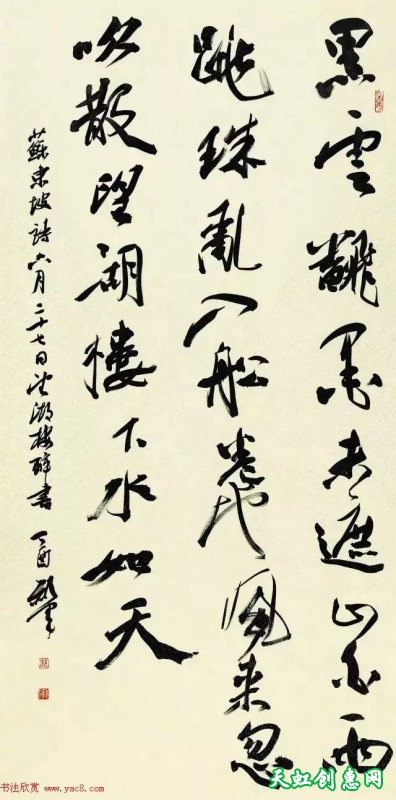 黑雲飜墨未遮山白雨
跳珠亂入船卷地風來忽
吹散望湖樓下水如天
蘇東坡詩六月二十七日望湖樓醉書 丁酉
书法欣赏 www.yac8.com
天虹创惠网